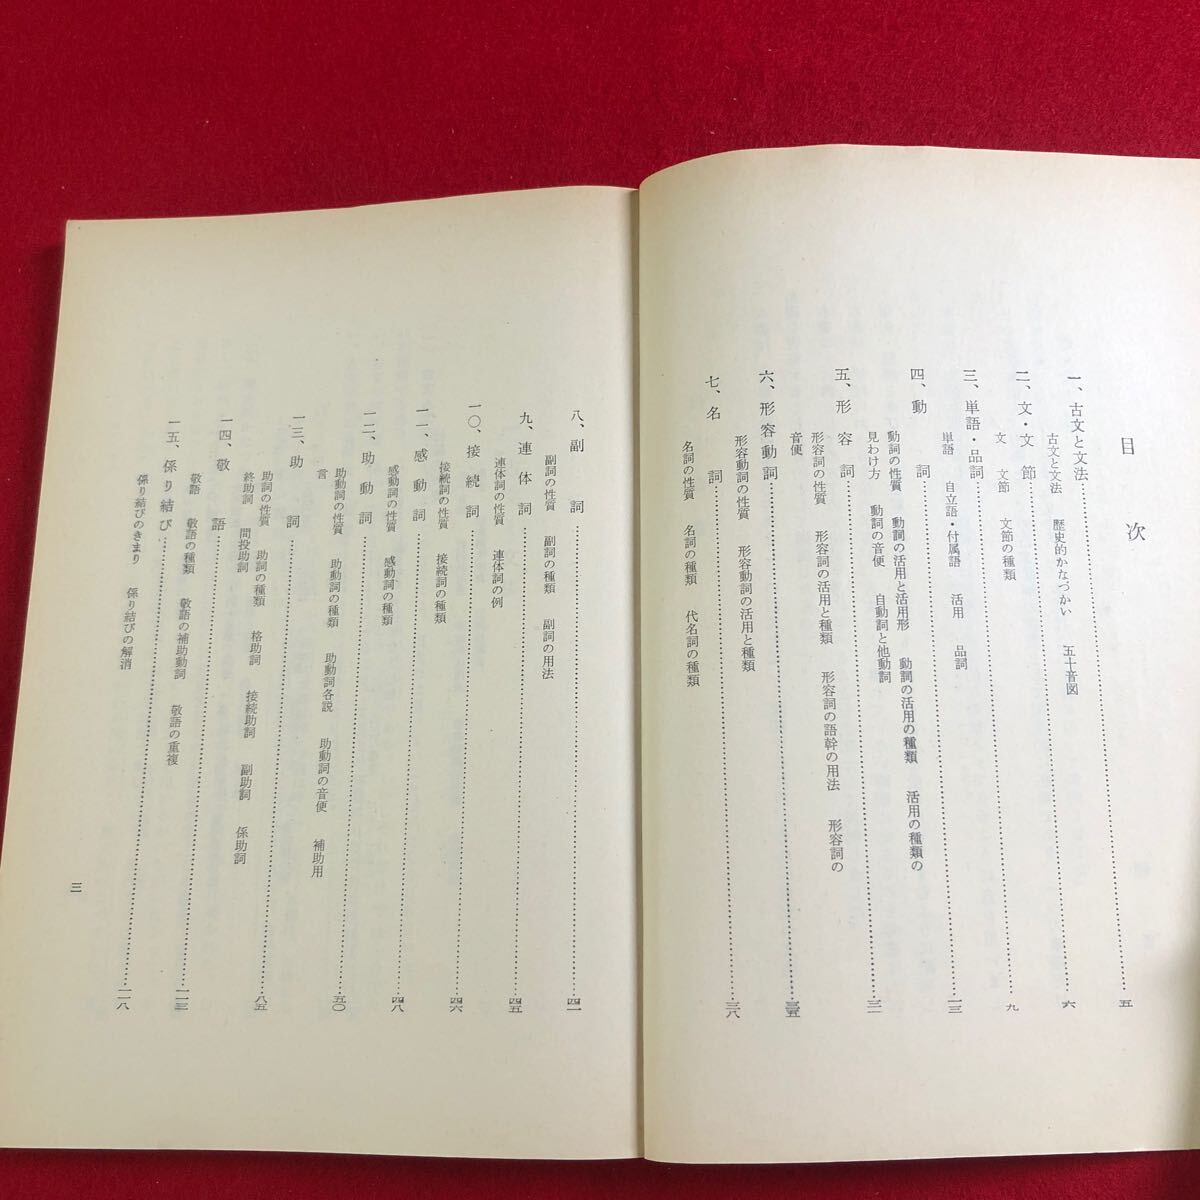 目次
一、古文と文法……五
古文と文法　歴史的かなづかい　五十音図
二、文・文節……六
文　文節　文節の種類
三、単語・品詞……九
単語　自立語・付属語　活用　品詞
四、動詞……一三
動詞の性質　動詞の活用と活用形　動詞の活用の種類　活用の種類の
見わけ方　動詞の音便　自動詞と他動詞
五、形容詞……三一
形容詞の性質　形容詞の活用と種類　形容詞の語幹の用法　形容詞の
音便
六、形容動詞……三五
形容動詞の性質　形容動詞の活用と種類
七、名詞……三八
名詞の性質　名詞の種類　代名詞の種類
八、副詞……四一
副詞の性質　副詞の種類　副詞の用法
九、連体詞……四五
連体詞の性質　連体詞の例
一〇、接続詞……四六
接続詞の性質　接続詞の種類
一一、感動詞……四八
感動詞の性質　感動詞の種類
一二、助動詞……五〇
助動詞の性質　助動詞の種類　助動詞各説　助動詞の音便　補助用
言
一三、助詞……八五
助詞の性質　助詞の種類　格助詞　接続助詞　副助詞　係助詞
終助詞　間投助詞
一四、敬語……一一三
敬語　敬語の種類　敬語の補助動詞　敬語の重複
一五、係り結び……一一八
係り結びのきまり　係り結びの解消
三